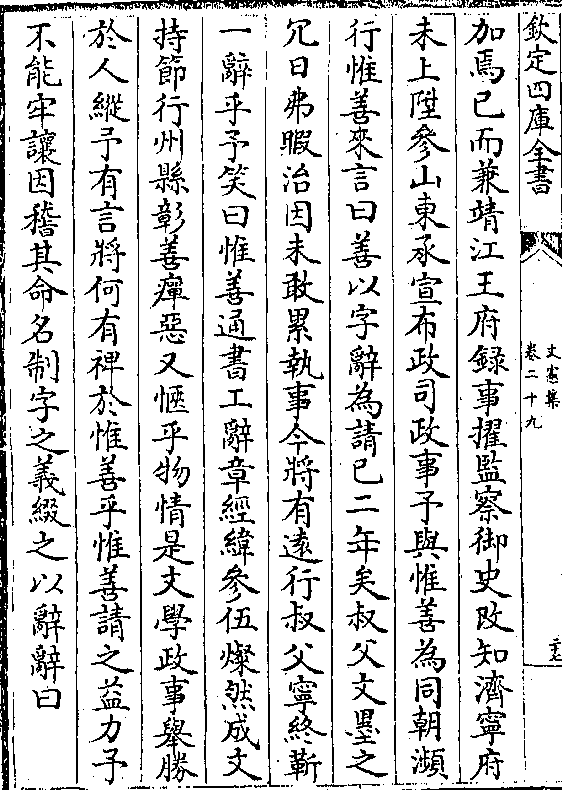 欽定四庫全書
文憲集
卷二十九
加焉已而兼靖江王府録事擢監察御史改知濟寧府
未上陞參山東承宣布政司政事予與惟善為同朝瀕
行惟善來言曰善以字辭為請已二年矣叔父文墨之
冗日弗暇治因未敢累執事今將有逺行叔父寧終靳
一辭乎予笑曰惟善通書工辭章經緯參伍燦然成文
持節行州縣彰善癉惡又愜乎物情是文學政事舉勝
於人縱予有言將何有禆於惟善乎惟善請之益力予
不能牢讓因稽其命名制字之義綴之以辭辭曰